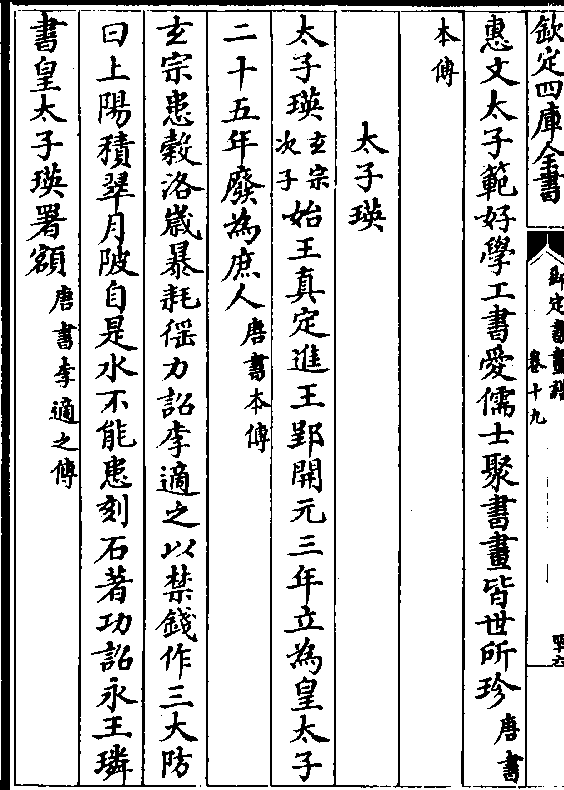 欽定四庫全書
御定書畫譜
卷十九
惠文太子範好學工書愛儒士聚書畫皆世所珍唐書
本傳
太子瑛
太子瑛玄宗次子始王真定進王郢開元三年立為皇太子
二十五年廢為庶人唐書本傳
玄宗患穀洛歲暴耗徭力詔李適之以禁錢作三大防
曰上陽積翠月陂自是水不能患刻石著功詔永王璘
書皇太子瑛署額唐書李適之傳